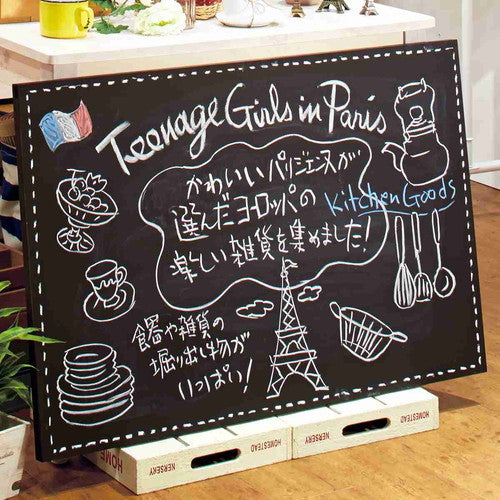 Teenage Girls in Paris
かわいいパリジェンヌが
選んだヨーロッパの
楽しい雑貨を集めました!
Kitchen Goods
食器や雑貨の
掘り出し物が
いっぱい!
HOMESTEAD
NERSERY
HOMESTEAD
NERSERY
HOMESTEAD
NERSERY